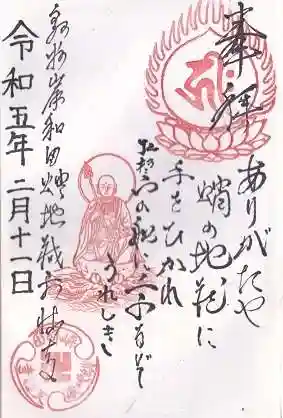 奉拝
ありがたや
蛸の地蔵に
手をひかれ
の船に
うれしき
泉州岸和田蛸地蔵
令和五年二月十一日